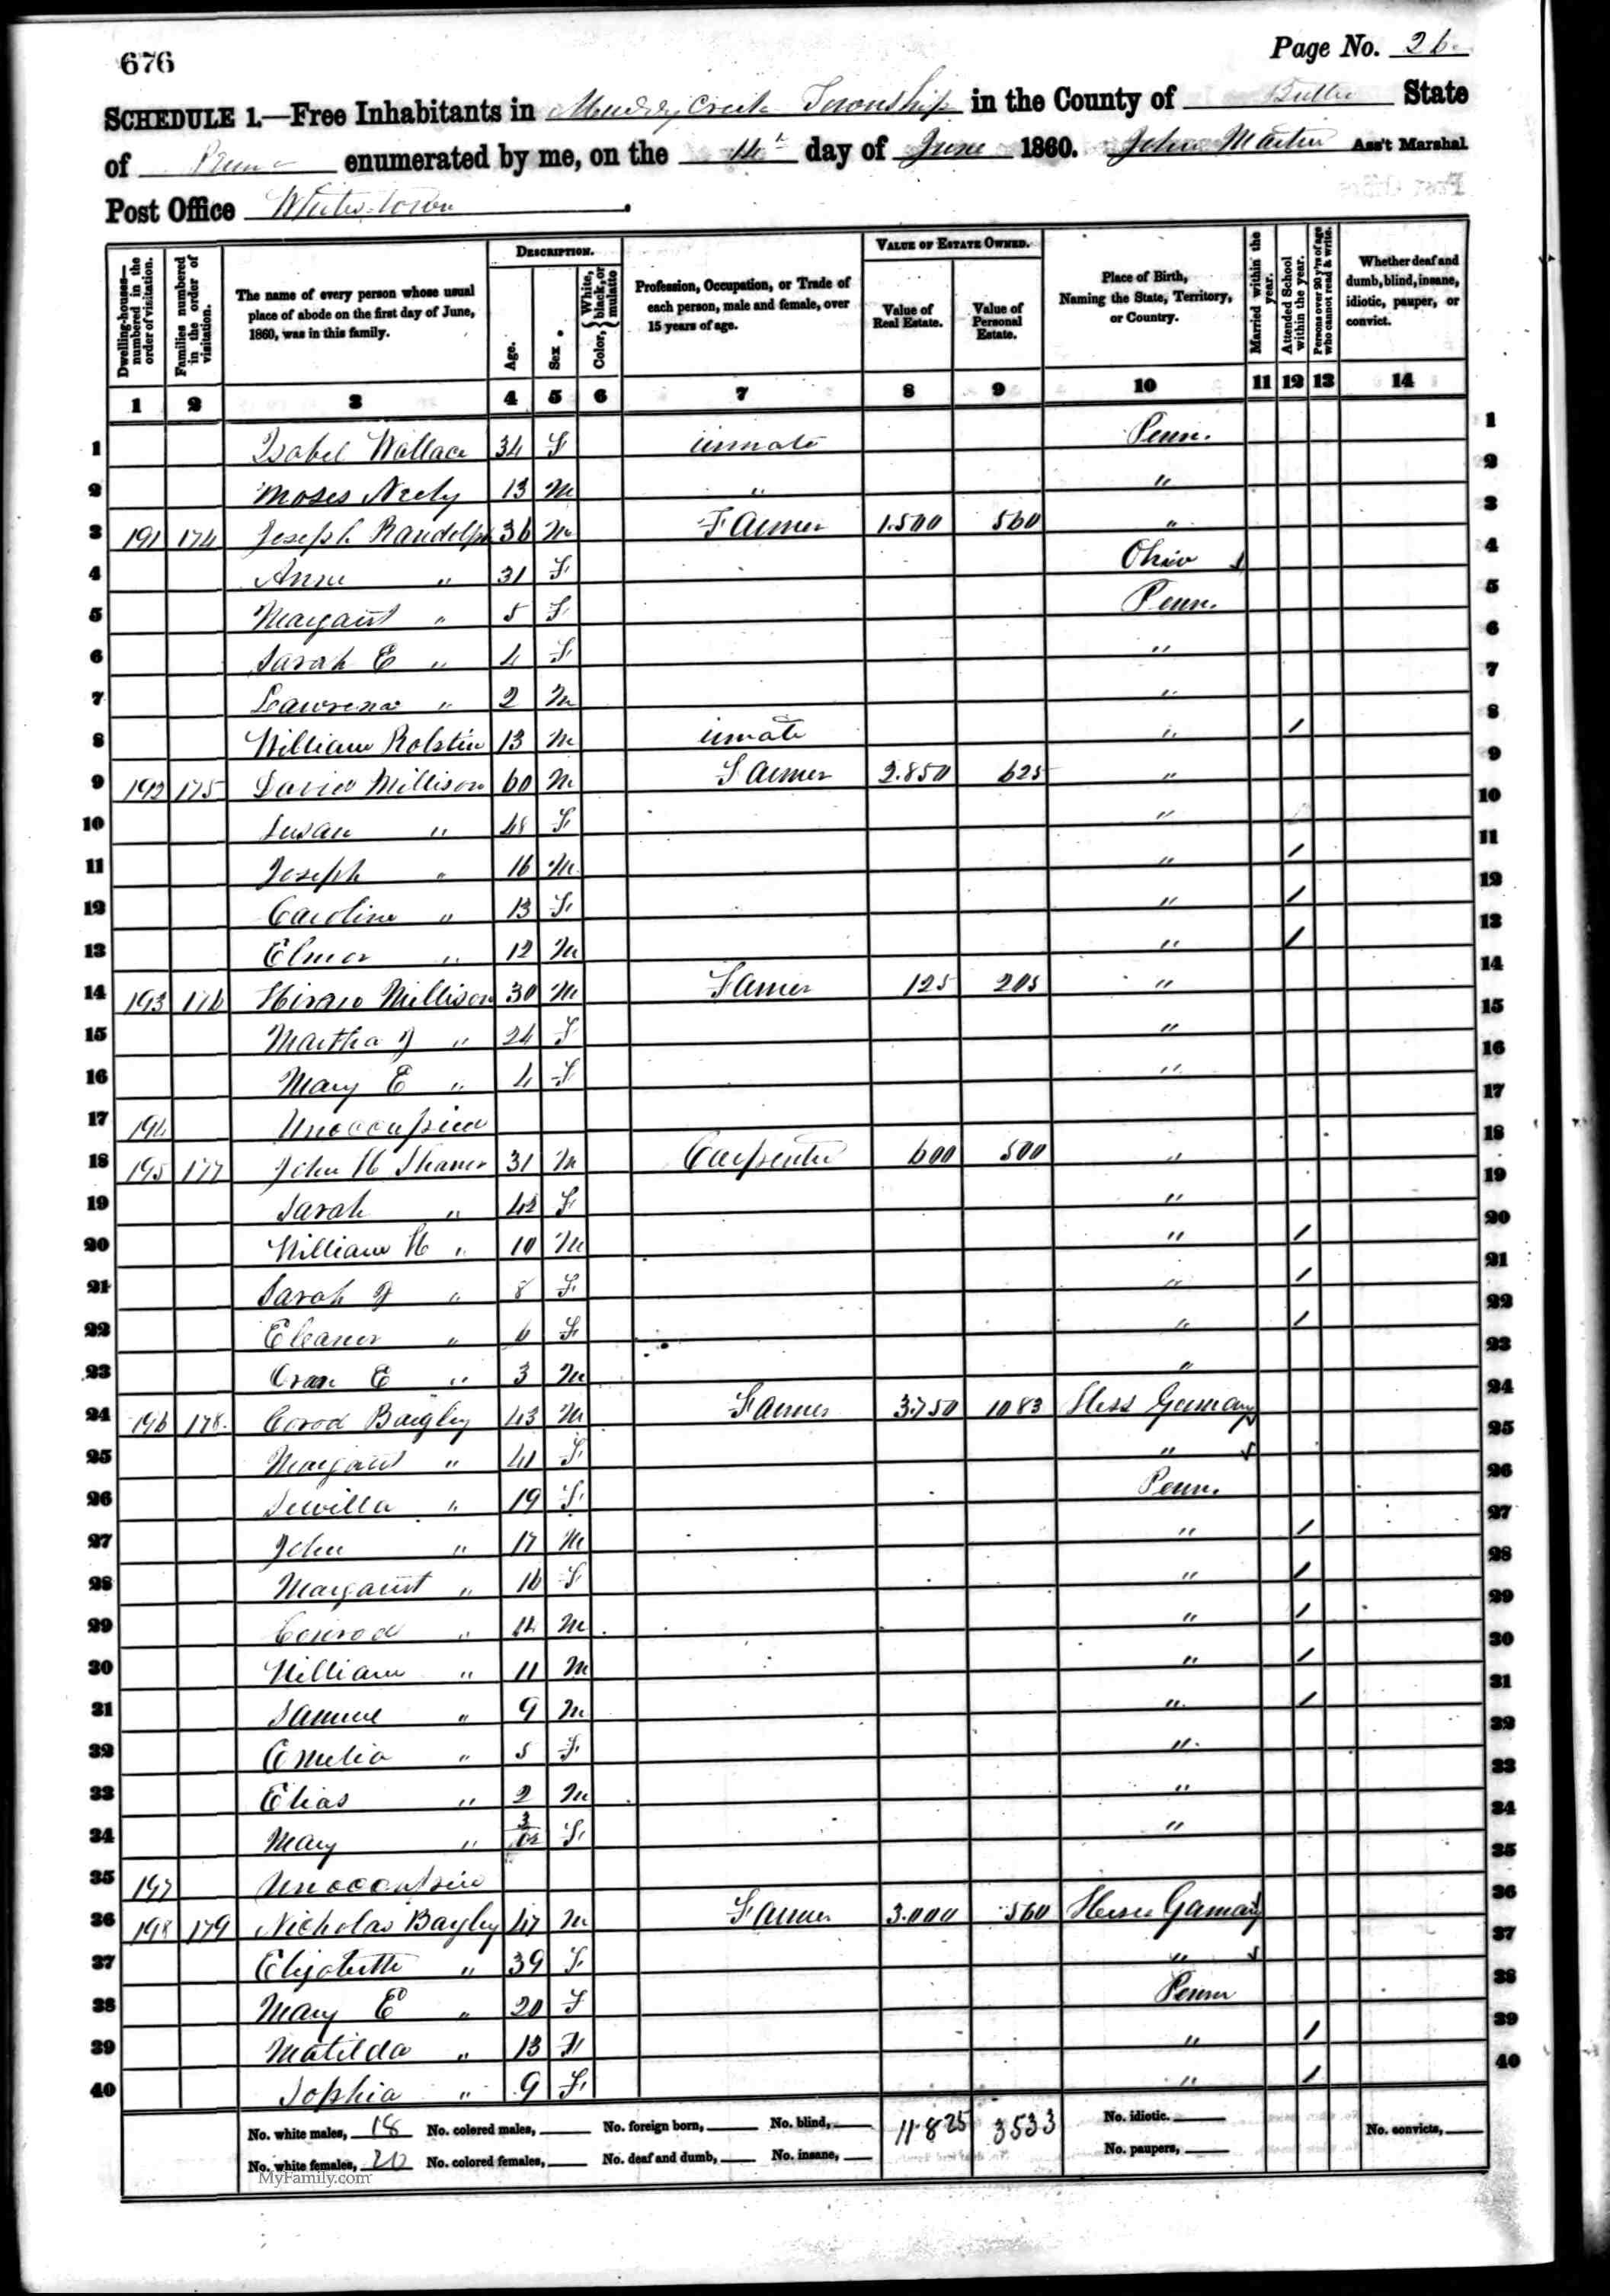 676
Page No. 26
SCHEDULE 1.—Free Inhabitants in Muddy Creek Township in the County of Butler State
of Penna enumerated by me, on the 14th day of June 1860. John Martin Ass't Marshal
Post Office Whites town.
Dwelling-houses—numbered in the order of visitation. Families numbered in the order of visitation. The name of every person whose usual place of abode on the first day of June, 1860, was in this family. DESCRIPTION. Age. Sex. Color, {White, black, or mulatto Profession, Occupation, or Trade of each person, male and female, over 15 years of age. VALUE OF ESTATE OWNED. Value of Real Estate. Value of Personal Estate. Place of Birth, Naming the State, Territory, or Country. Married within the year. Attended School within the year. Persons over 20 y'rs of age who cannot read & write. Whether deaf and dumb, blind, insane, idiotic, pauper, or convict.
1 2 3 4 5 6 7 8 9 10 11 12 13 14
1 Isabel Wallace 34 F inmate Penn. 1
2 Moses Neely 13 M " " 2
3 191 174 Joseph Randolph 36 M Farmer 1.500 560 " 3
4 Anne " 31 F Ohio 4
5 Margaret " 5 F Penn. 5
6 Sarah E " 4 F " 6
7 Lawrence " 2 M " 7
8 William Rolstin 13 M inmate " / 8
9 192 175 David Millison 60 M Farmer 2.850 625 " 9
10 Susan " 48 F " 10
11 Joseph " 16 M " / 11
12 Caroline " 13 F " / 12
13 Elmor " 12 M " / 13
14 193 176 Hiram Millison 30 M Farmer 125 205 " 14
15 Martha J " 24 F " 15
16 Mary E " 4 F " 16
17 194 Unoccupied 17
18 195 177 John H Shaner 31 M Carpenter 600 500 " 18
19 Sarah " 42 F " 19
20 William H " 10 M " / 20
21 Sarah J " 8 F " / 21
22 Eleanor " 6 F " / 22
23 Oran E " 3 M " 23
24 196 178. Corod Baigley 43 M Farmer 3.750 1083 Hess Gemany 24
25 Margaret " 41 F " 25
26 Sewilla " 19 F Penn. 26
27 John " 17 M " / 27
28 Margaret " 16 F " / 28
29 Conrod " 14 M " / 29
30 William " 11 M " / 30
31 Samuel " 9 M " / 31
32 Emelia " 5 F " 32
33 Elias " 2 M " 33
34 Mary " 3/12 F " 34
35 197 Unoccupied 35
36 198 179 Nicholas Bagley 47 M Farmer 3.000 560 Hesse Gamany 36
37 Elizabetth " 39 F " 37
38 Mary E " 20 F Penn 38
39 Matilda " 13 F " / 39
40 Sophia " 9 F " / 40
No. white males, 18 No. colored males, No. foreign born, No. blind, 11.825 3533 No. idiotic. No. convicts,
No. white females, 20 No. colored females, No. deaf and dumb, No. insane, No. paupers,
MyFamily.com